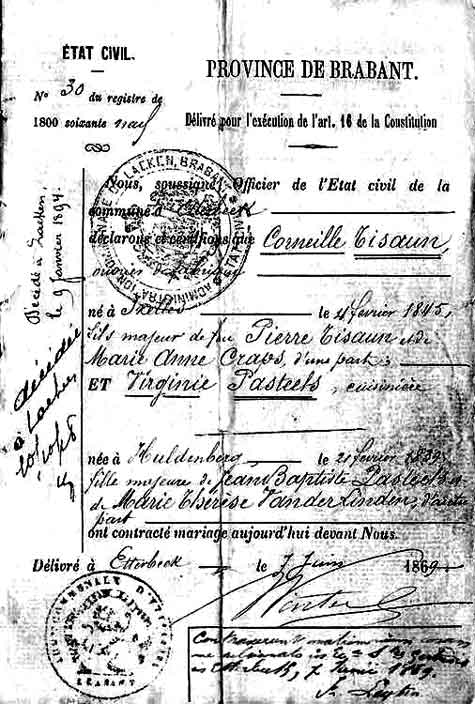 ÉTAT CIVIL.
PROVINCE DE BRABANT.
N° 30 du registre de
1800 soixante neuf
Délivré pour l'exécution de l'art. 16 de la Constitution
LAEKEN, BRABANT
ADMINISTRATION
Nous, soussigné Officier de l'Etat civil de la
commune d' Etterbeek
déclarons et certifions que Corneille Tisaun,
ouvrier
né à Ixelles le 4 février 1845,
fils majeur de feu Pierre Tisaun et de
Marie Anne Craps, d'une part;
ET Virginie Pasteels, cuisinière
née à Huldenberg le 2 février 1839,
fille majeure de Jean Baptiste Pasteels et
de Marie Thérèse Vander Linden, d'autre
part
ont contracté mariage aujourd'hui devant Nous.
Délivré à Etterbeek le 7 Juin 1869
Décédé à Laeken,
le 9 Janvier 1894
décédée
à Laeken
BRABANT
Etterbeek, 7 Junii 1869.